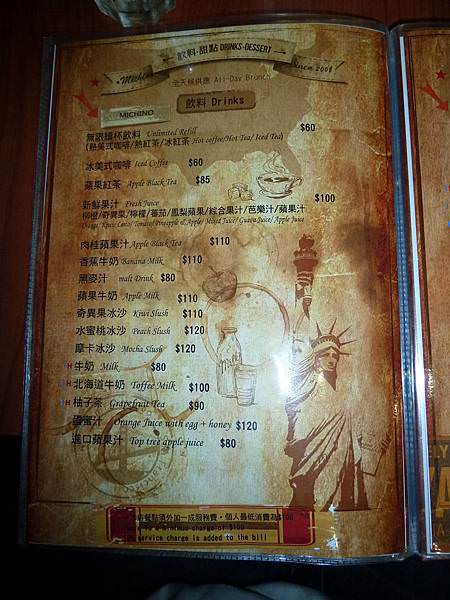 飲料·甜點 DRINKS·DESSERT
Since 2008
全天候供應 All-Day Brunch
MICHINO
飲料 Drinks
無限續杯飲料 Unlimited Refill $60
(熱美式咖啡/熱紅茶/冰紅茶 Hot coffee/Hot Tea/ Iced Tea)
冰美式咖啡 Iced Coffee $60
蘋果紅茶 Apple Black Tea $85
新鮮果汁 Fresh Juice $100
柳橙/奇異果/檸檬/蕃茄/鳳梨蘋果/綜合果汁/芭樂汁/蘋果汁
Orange/ Kiwi/ Lemon/ Tomato/ Pineapple & Apple/ Mixed Juice/ Guava Juice/ Apple Juice
肉桂蘋果汁 Apple Black Tea $110
香蕉牛奶 Banana Milk $110
黑麥汁 malt Drink $80
蘋果牛奶 Apple Milk $110
奇異果冰沙 Kiwi Slush $110
水蜜桃冰沙 Peach Slush $120
摩卡冰沙 Mocha Slush $120
H 牛奶 Milk $80
H 北海道牛奶 Toffee Milk $100
H 柚子茶 Grapefruit Tea $90
蜜汁 Orange Juice with egg + honey $120
進口蘋果汁 Top tree apple juice $80
milk
餐點須外加一成服務費，個人最低消費為$100
is a minimum charge of $100
service charge is added to the bill